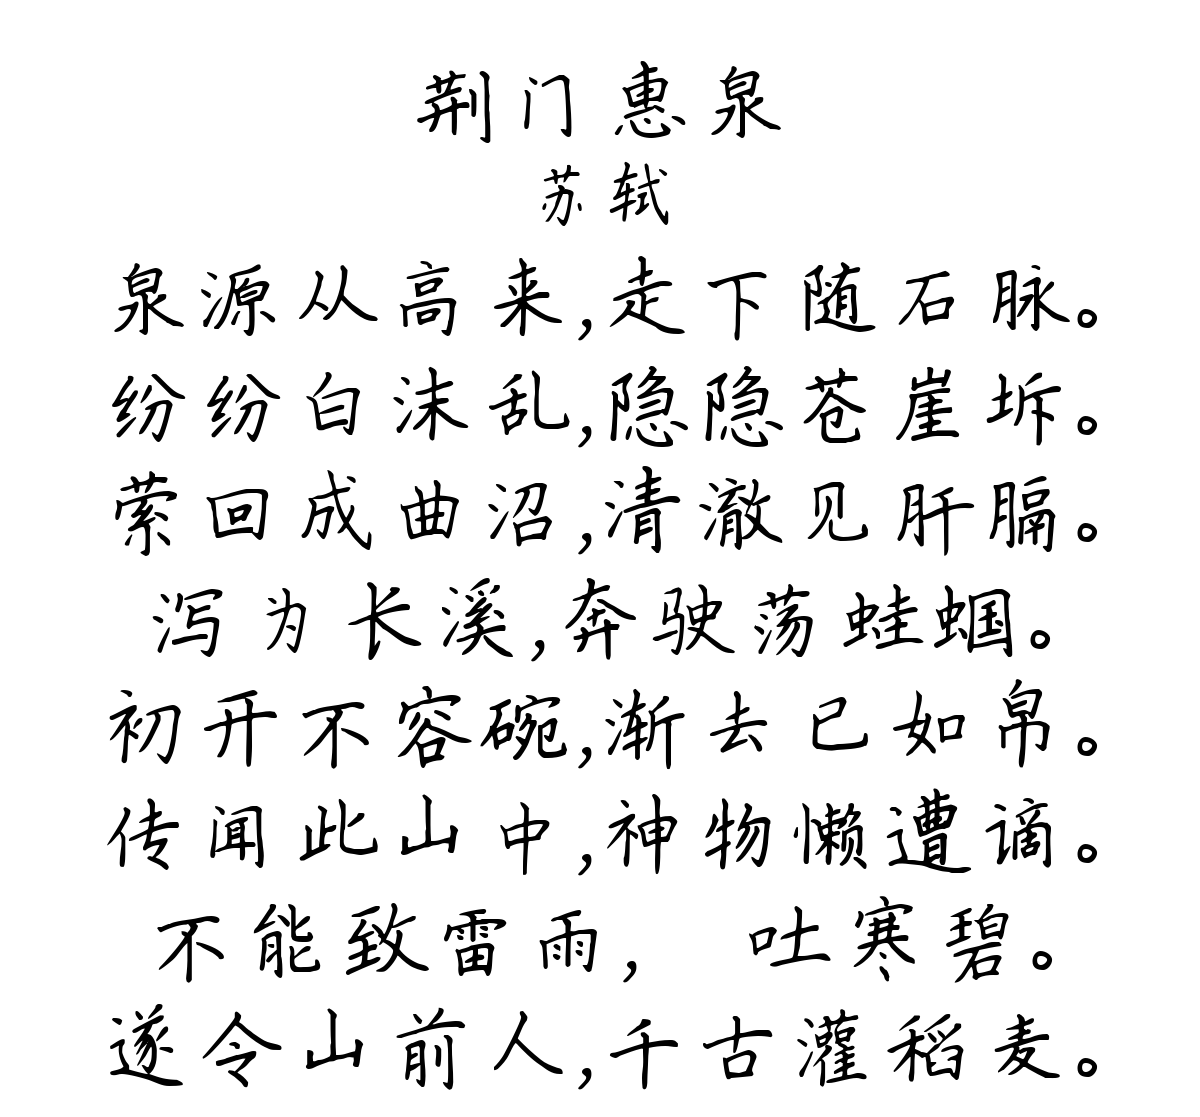 荆门惠泉
苏轼
泉源从高来,走下随石脉。
纷纷白沫乱,隐隐苍崖坼。
萦回成曲沼,清澈见肝膈。
泻为长溪,奔驶荡蛙蝈。
初开不容碗,渐去已如帛。
传闻此山中,神物懒遭谪。
不能致雷雨, 吐寒碧。
遂令山前人,千古灌稻麦。